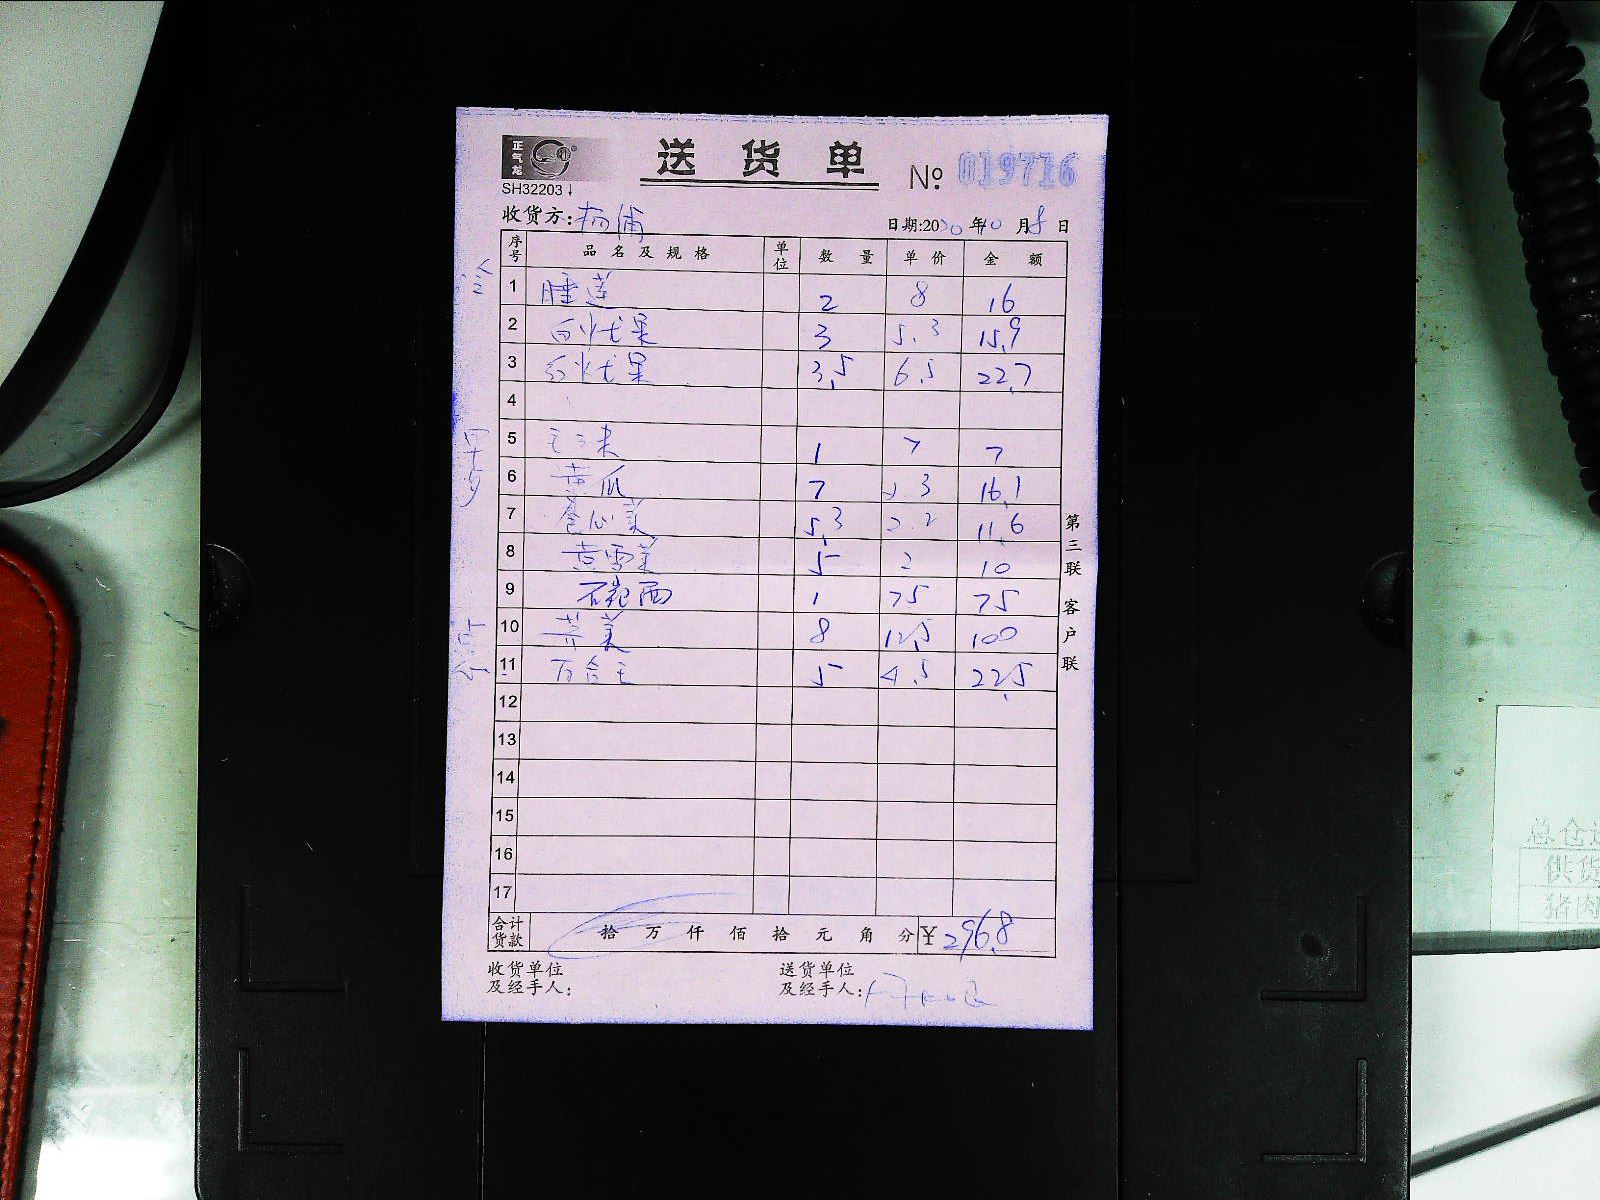 正气龙
SH32203
送货单 № 019716
收货方: 杨浦 日期:2020年10月8日
序号 品名及规格 单位 数量 单价 金额
1 睡莲 2 8 16
2 白火龙果 3 5.3 15.9
3 红火龙果 3.5 6.5 22.7
4
5 1 7 7
6 黄瓜 7 2.3 16.1
7 卷心菜 5.3 2.2 11.6
8 5 2 10
9 1 75 75
10 芥菜 8 12.5 100
11 5 4.5 22.5
12
13
14
15
16
17
合计货款 拾万仟佰拾元角分 ¥296.8
收货单位及经手人:
送货单位及经手人:
第三联 客户联
总仓
供货
猪肉